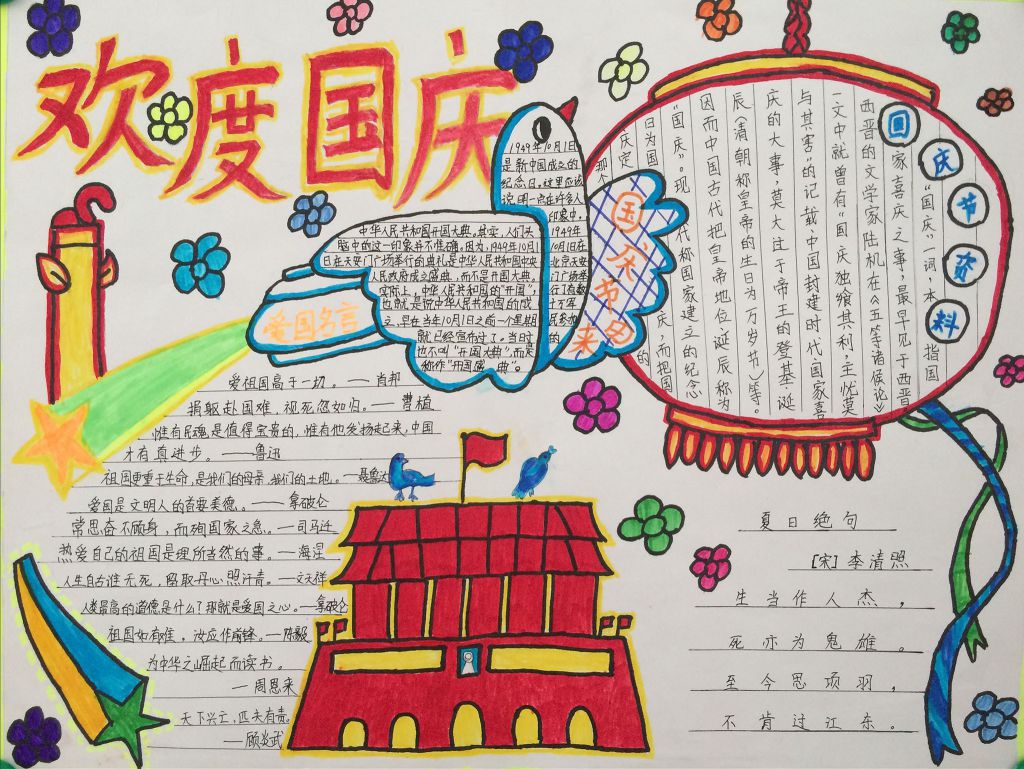 欢度国庆
1949年10月1日
是新中国成立的
纪念日。这里应该
说明一点,在许多人
印象中,
1949年
10月1日在
北京天安
门广场举
行了有数
十万军
民参加
的
中华人民共和国开国大典。其实,人们头
脑中的这一印象并不准确。因为,1949年10月1
日在天安门广场举行的典礼是中华人民共和国中央
人民政府成立盛典,而不是开国大典。
实际上,中华人民共和国的"开国",
也就是说中华人民共和国的成
立,早在当年10月1日之前一个星期
就已经宣布过了。当时
也不叫"开国大典",而是
称作"开国盛典"。
国庆节由来
爱国名言
国庆节资料
"国庆"一词,本指国
家喜庆之事,最早见于西晋
西晋的文学家陆机在《五等诸侯论》
一文中就曾有"国庆独飨其利,主忧莫
与其害"的记载、中国封建时代、国家喜
庆的大事,莫大过于帝王的登基、诞
辰(清朝称皇帝的生日为万岁节)等。
因而中国古代把皇帝地位、诞辰称为
"国庆"。现代称国家建立的纪念
日为国庆,而把国
庆定的
那个
爱祖国高于一切。——肖邦
捐躯赴国难,视死忽如归。——曹植
惟有民魂是值得宝贵的,惟有他发扬起来,中国
才有真进步。——鲁迅
祖国更重于生命,是我们的母亲,我们的土地。——聂鲁达
爱国是文明人的首要美德。——拿破仑
常思奋不顾身,而殉国家之急。——司马迁
热爱自己的祖国是理所当然的事。——海涅
人生自古谁无死,留取丹心照汗青。——文天祥
人类最高的道德是什么?那就是爱国之心。——拿破仑
祖国如有难,汝应作前锋。——陈毅
为中华之崛起而读书。
——周恩来
天下兴亡,匹夫有责。
——顾炎武
夏日绝句
[宋]李清照
生当作人杰,
死亦为鬼雄。
至今思项羽,
不肯过江东。